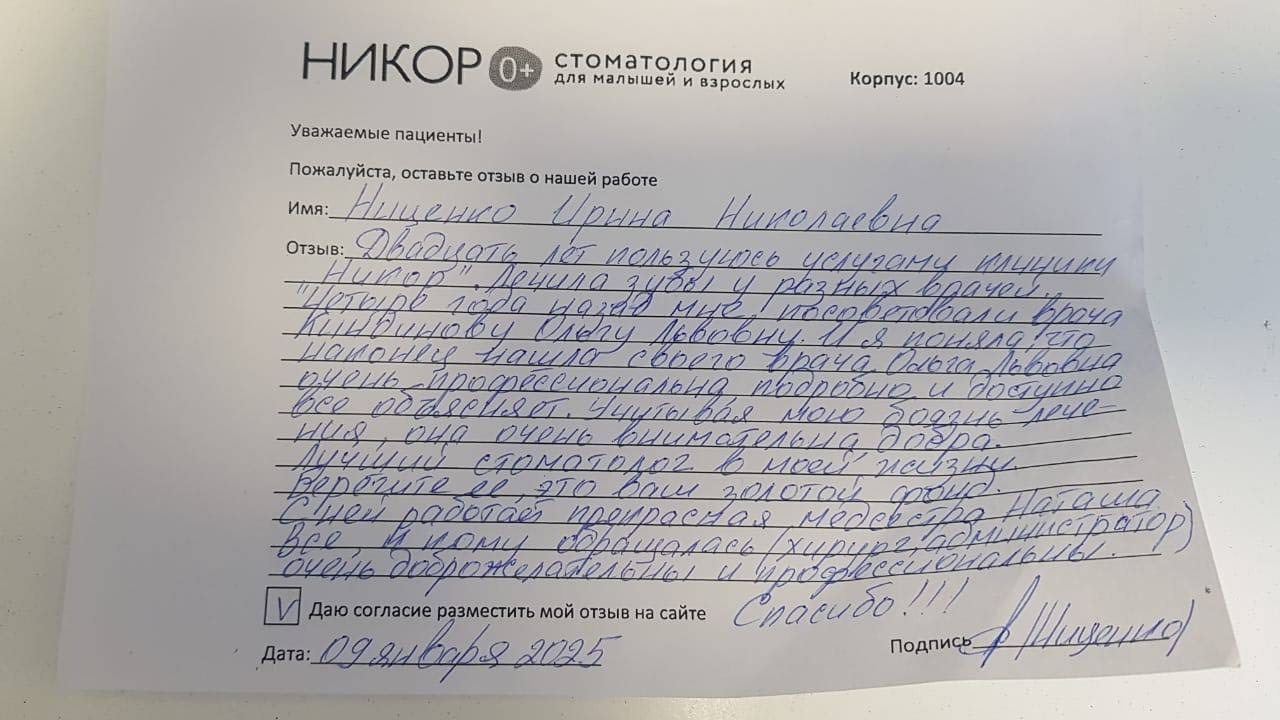 НИКОР 0+ стоматология
для малышей и взрослых
Корпус: 1004
Уважаемые пациенты!
Пожалуйста, оставьте отзыв о нашей работе
Имя: Нищенко Ирина Николаевна
Отзыв: Двадцать лет пользуюсь услугами клиники
"Никор". Лечила зубы у разных врачей.
Четыре года назад мне посоветовали врача
Киндинову Ольгу Львовну. И я поняла, что
наконец нашла своего врача. Ольга Львовна
очень профессиональна, подробно и доступно
все объясняет. Учитывая мою боязнь лече-
ния, она очень внимательна, добра.
Лучший стоматолог в моей жизни.
Берегите ее, это ваш золотой фонд.
С ней работает прекрасная медсестра Наташа
Все, к кому обращалась (хирург, администратор)
очень доброжелательны и профессиональны.
V Даю согласие разместить мой отзыв на сайте Спасибо!!!
Дата: 09 января 2025
Подпись